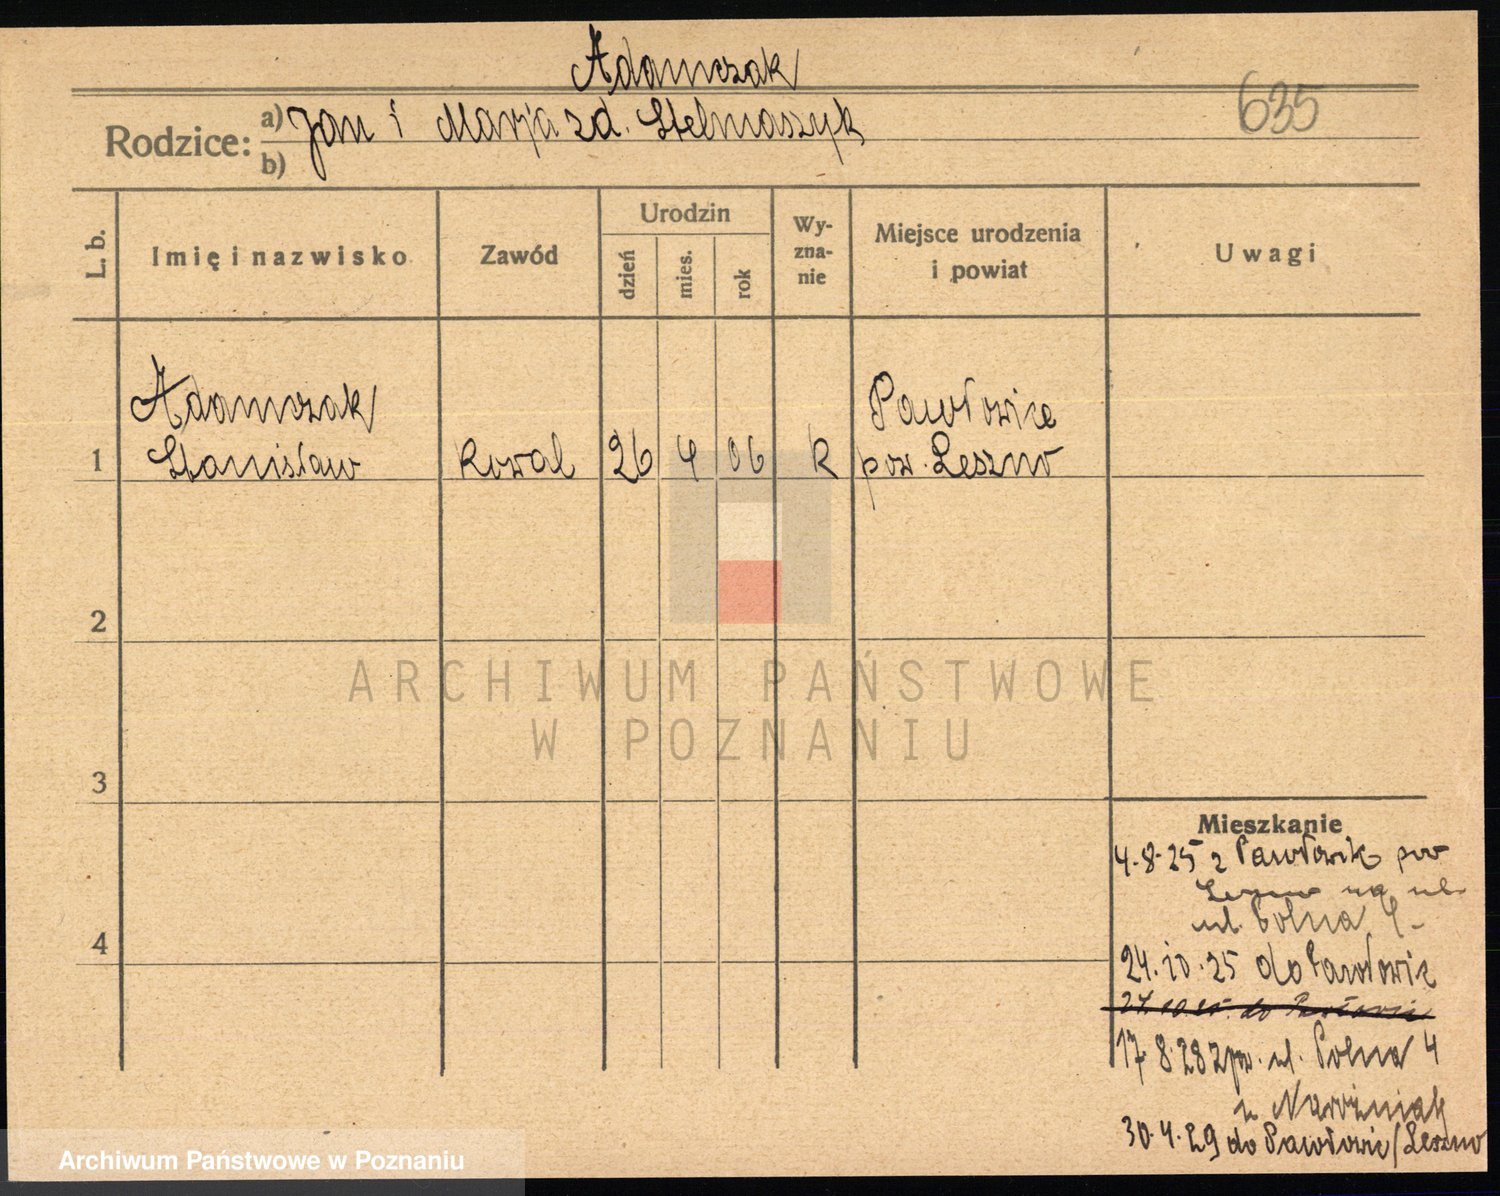 Adamczak
635
Rodzice:
a) Jan i Marja zd. Stelmaszyk
b)
L. b.
Imię i nazwisko
Zawód
Urodzin
dzień
mies.
rok
Wy-
zna-
nie
Miejsce urodzenia
i powiat
Uwagi
Adamczak
Pawłowice
1 Stanisław Kowal 26 4 06 R pow. Leszno
2
ARCHIWUM PAŃSTWOWE
W POZNANIU
3
Mieszkanie
4.8.25 z Pawłowic pow
Leszno na ul.
ul. Polna 4
4
24.10.25 do Pawłowic
24.10.25. do Pawłowic
17.8.28 ul. Polna 4
u Narożniak
30.4.29 do Pawłowic/Leszno
Archiwum Państwowe w Poznaniu